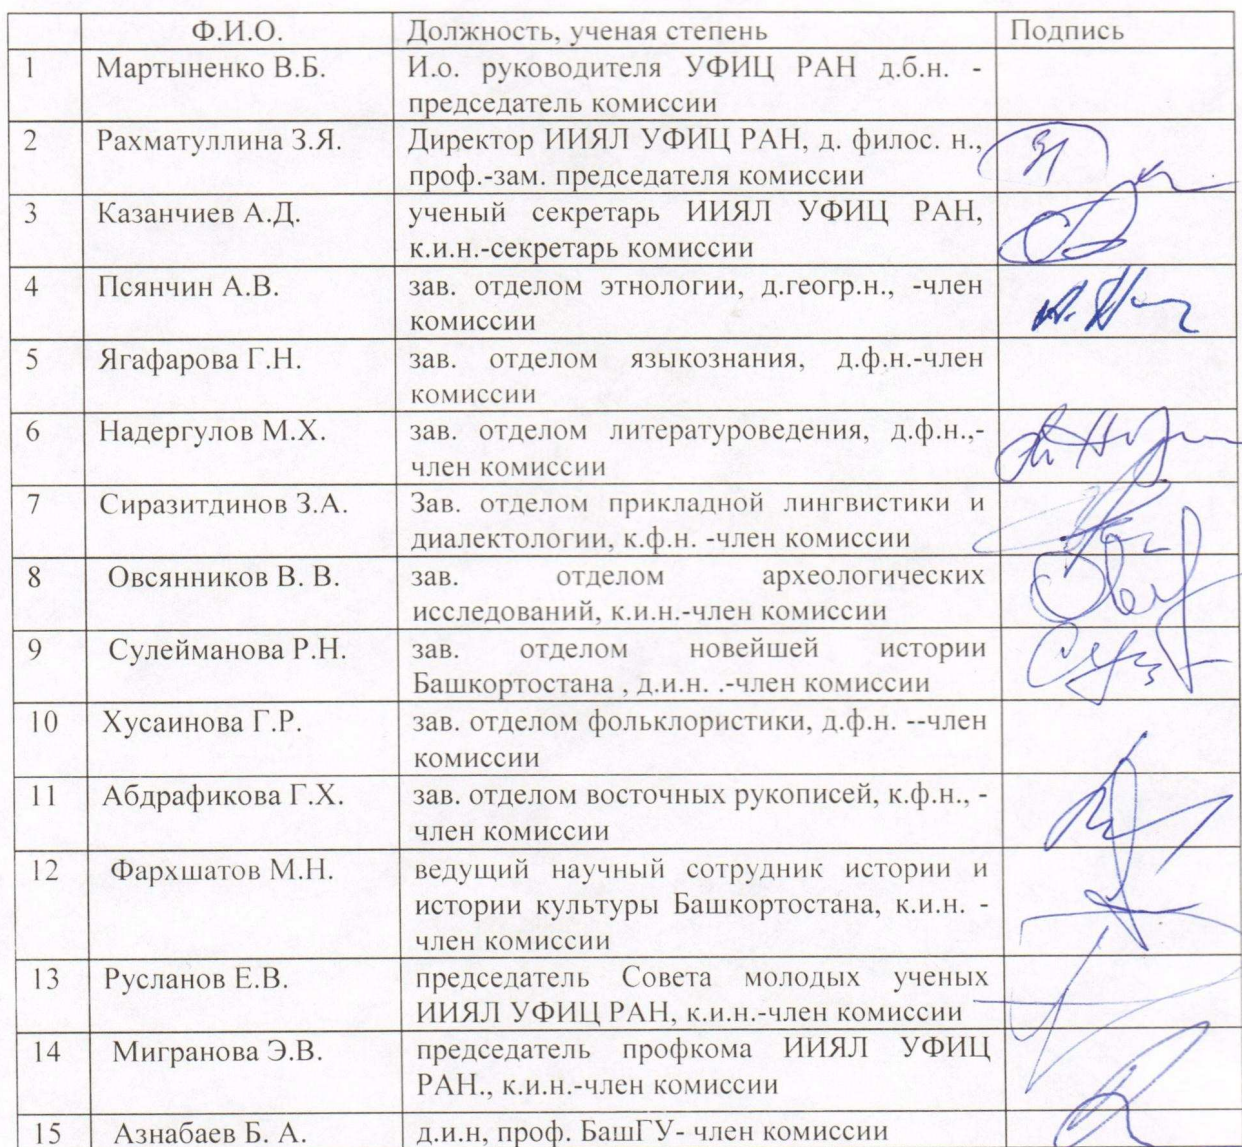 Ф.И.О. Должность, ученая степень Подпись
1 Мартыненко В.Б. И.о. руководителя УФИЦ РАН д.б.н. -
председатель комиссии
2 Рахматуллина З.Я. Директор ИИЯЛ УФИЦ РАН, д. филос. н.,
проф.-зам. председателя комиссии
3 Казанчиев А.Д. ученый секретарь ИИЯЛ УФИЦ РАН,
к.и.н.-секретарь комиссии
4 Псянчин А.В. зав. отделом этнологии, д.геогр.н., -член
комиссии
5 Ягафарова Г.Н. зав. отделом языкознания, д.ф.н.-член
комиссии
6 Надергулов М.Х. зав. отделом литературоведения, д.ф.н.,-
член комиссии
7 Сиразитдинов З.А. Зав. отделом прикладной лингвистики и
диалектологии, к.ф.н. -член комиссии
8 Овсянников В. В. зав. отделом археологических
исследований, к.и.н.-член комиссии
9 Сулейманова Р.Н. зав. отделом новейшей истории
Башкортостана , д.и.н. .-член комиссии
10 Хусаинова Г.Р. зав. отделом фольклористики, д.ф.н. --член
комиссии
11 Абдрафикова Г.Х. зав. отделом восточных рукописей, к.ф.н., -
член комиссии
12 Фархшатов М.Н. ведущий научный сотрудник истории и
истории культуры Башкортостана, к.и.н. -
член комиссии
13 Русланов Е.В. председатель Совета молодых ученых
ИИЯЛ УФИЦ РАН, к.и.н.-член комиссии
14 Мигранова Э.В. председатель профкома ИИЯЛ УФИЦ
РАН., к.и.н.-член комиссии
15 Азнабаев Б. А. д.и.н, проф. БашГУ- член комиссии